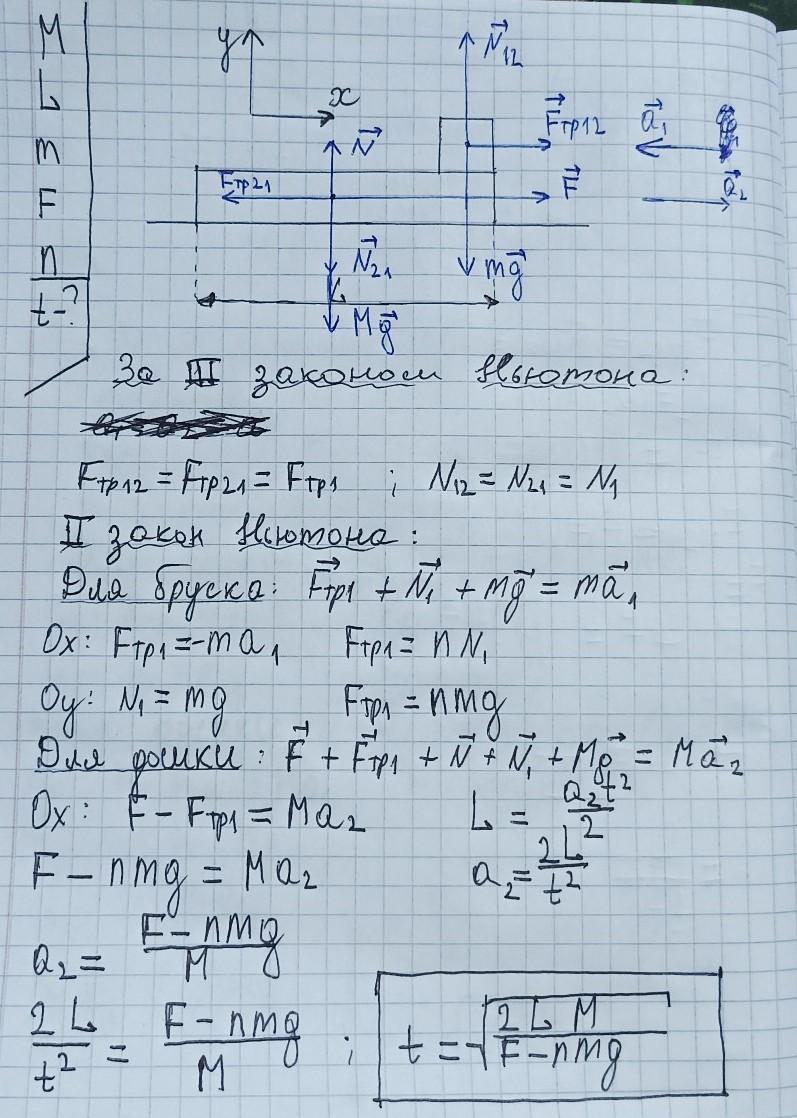 M
L
m
F
n
t-?
y
x
N⃗₁₂
N⃗
F⃗тр12
a⃗₁
Fтр21
F⃗
a⃗₂
N⃗₂₁
mg⃗
L
Mg⃗
За III законом Ньютона:
Fтр12 = Fтр21 = Fтр1 ; N₁₂ = N₂₁ = N₁
II закон Ньютона:
Для бруска: F⃗тр1 + N⃗₁ + mg⃗ = ma⃗₁
Ox: Fтр1 = -ma₁ Fтр1 = nN₁
Oy: N₁ = mg Fтр1 = nmg
Для дошки: F⃗ + F⃗тр1 + N⃗ + N⃗₁ + Mg⃗ = Ma⃗₂
Ox: F - Fтр1 = Ma₂ L = a₂t²/2
F - nmg = Ma₂ a₂ = 2L/t²
a₂ = F - nmg/M
2L/t² = F - nmg/M ; t = √2LM/F - nmg